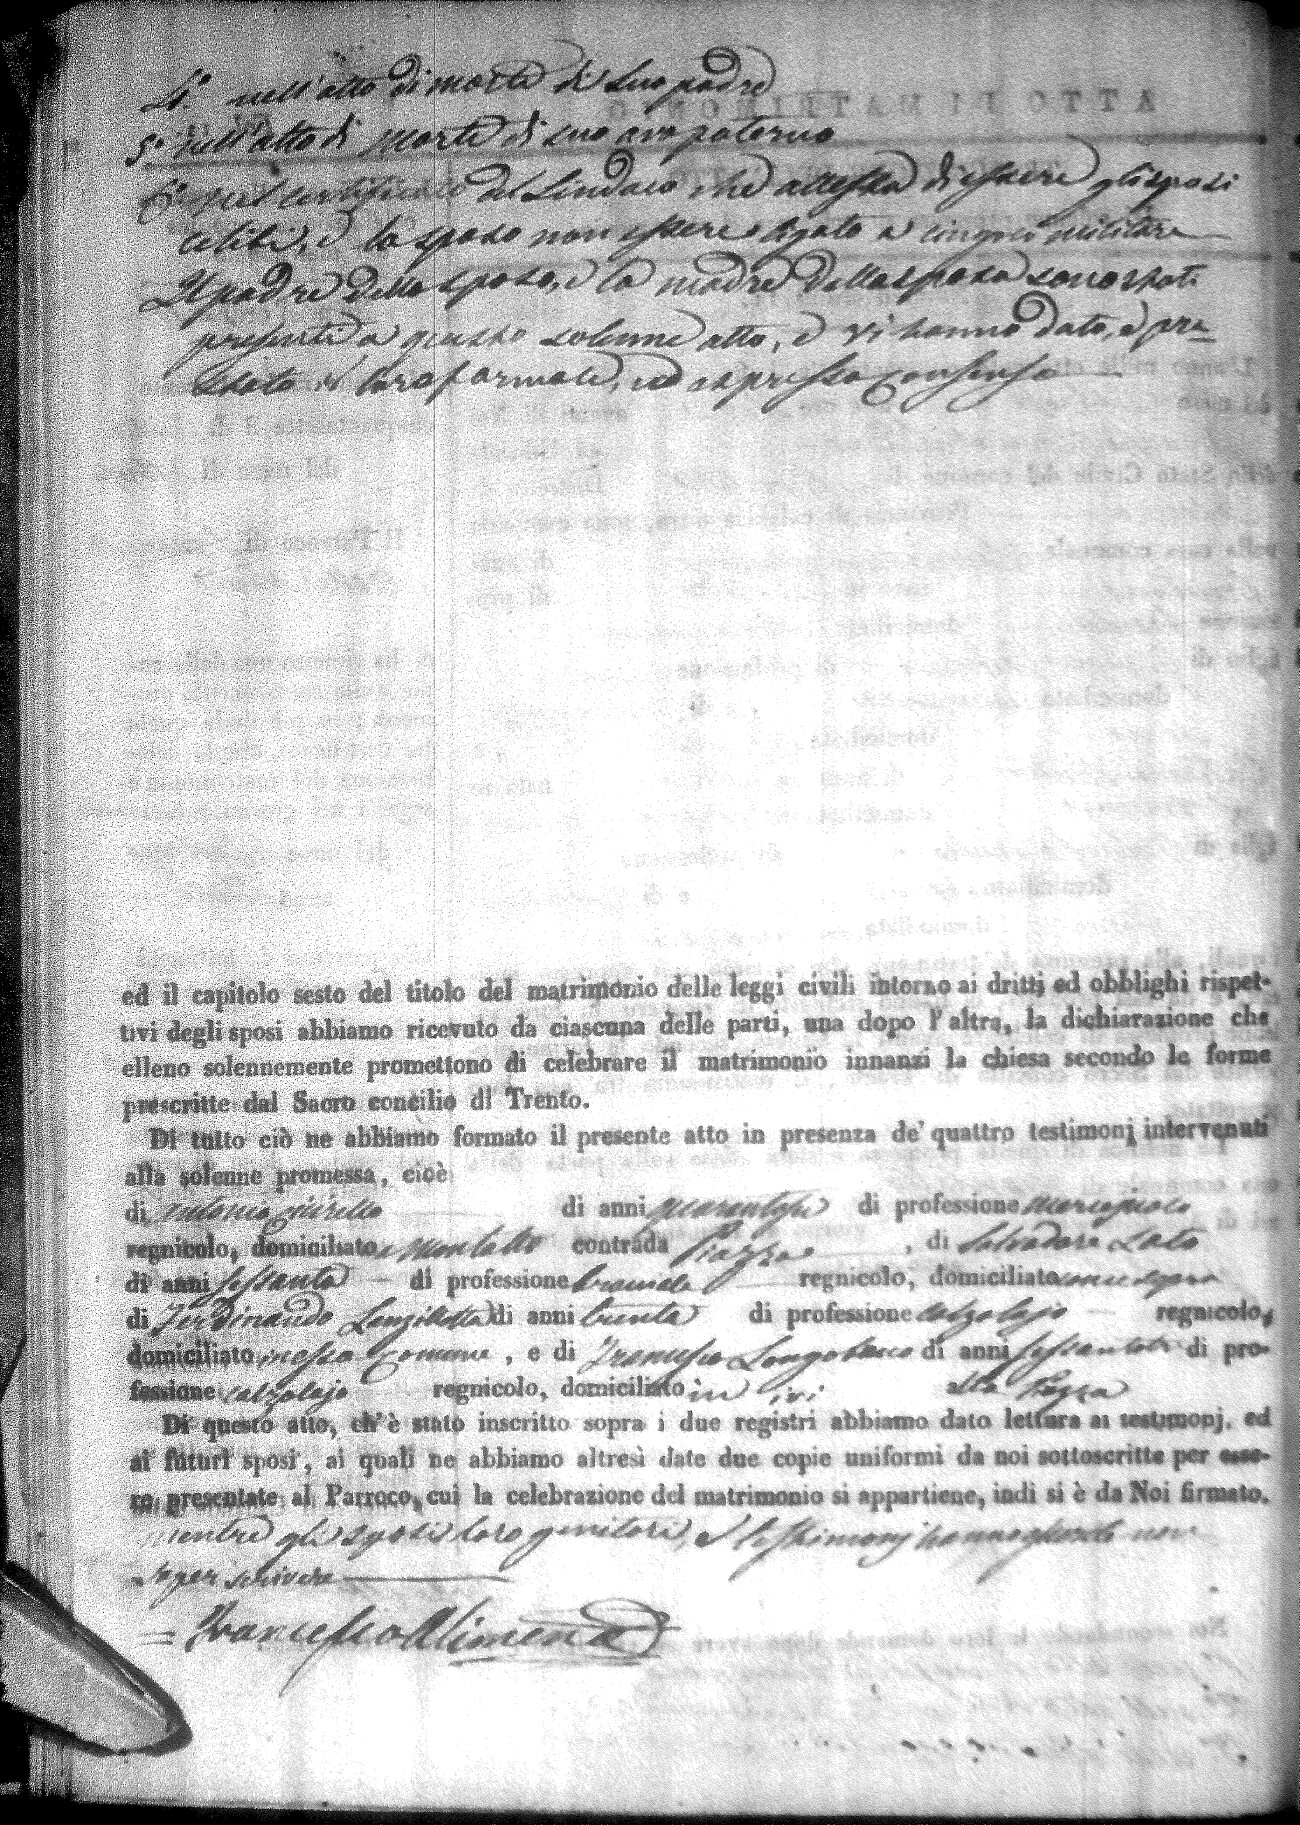 4.° nell'atto di morte di suo padre
5.° nell'atto di morte di suo avo paterno
6.° nel certificato del Sindaco che attesta di essere gli sposi
celibi, e lo sposo non essere ligato a cingolo militare
Il padre dello sposo, e la madre della sposa sono stati
presenti a questo solenne atto, e vi hanno dato, e pre=
stato il loro formale, ed espresso consenso
ed il capitolo sesto del titolo del matrimonio delle leggi civili intorno ai dritti ed obblighi rispet-
tivi degli sposi abbiamo ricevuto da ciascuna delle parti, una dopo l'altra, la dichiarazione che
elleno solennemente promettono di celebrare il matrimonio innanzi la chiesa secondo le forme
prescritte dal Sacro concilio di Trento.
Di tutto ciò ne abbiamo formato il presente atto in presenza de' quattro testimonj intervenuti
alla solenne promessa, cioè
di Antonio di anni quarantasei di professione
regnicolo, domiciliato Montalto contrada Piazza , di Salvadore Lato
di anni sessanta di professione bracciale regnicolo, domiciliato come sopra
di Ferdinando di anni trenta di professione calzolajo regnicolo,
domiciliato in essa Comune , e di Francesco Longobucco di anni di pro-
fessione calzolajo regnicolo, domiciliato in ivi alla Piazza
Di questo atto, ch'è stato inscritto sopra i due registri abbiamo dato lettura ai testimonj, ed
ai futuri sposi, ai quali ne abbiamo altresì date due copie uniformi da noi sottoscritte per esse-
re presentate al Parroco, cui la celebrazione del matrimonio si appartiene, indi si è da Noi firmato.
mentre gli sposi loro genitori, e testimonj hanno detto non
saper scrivere
= Francesco Alimena